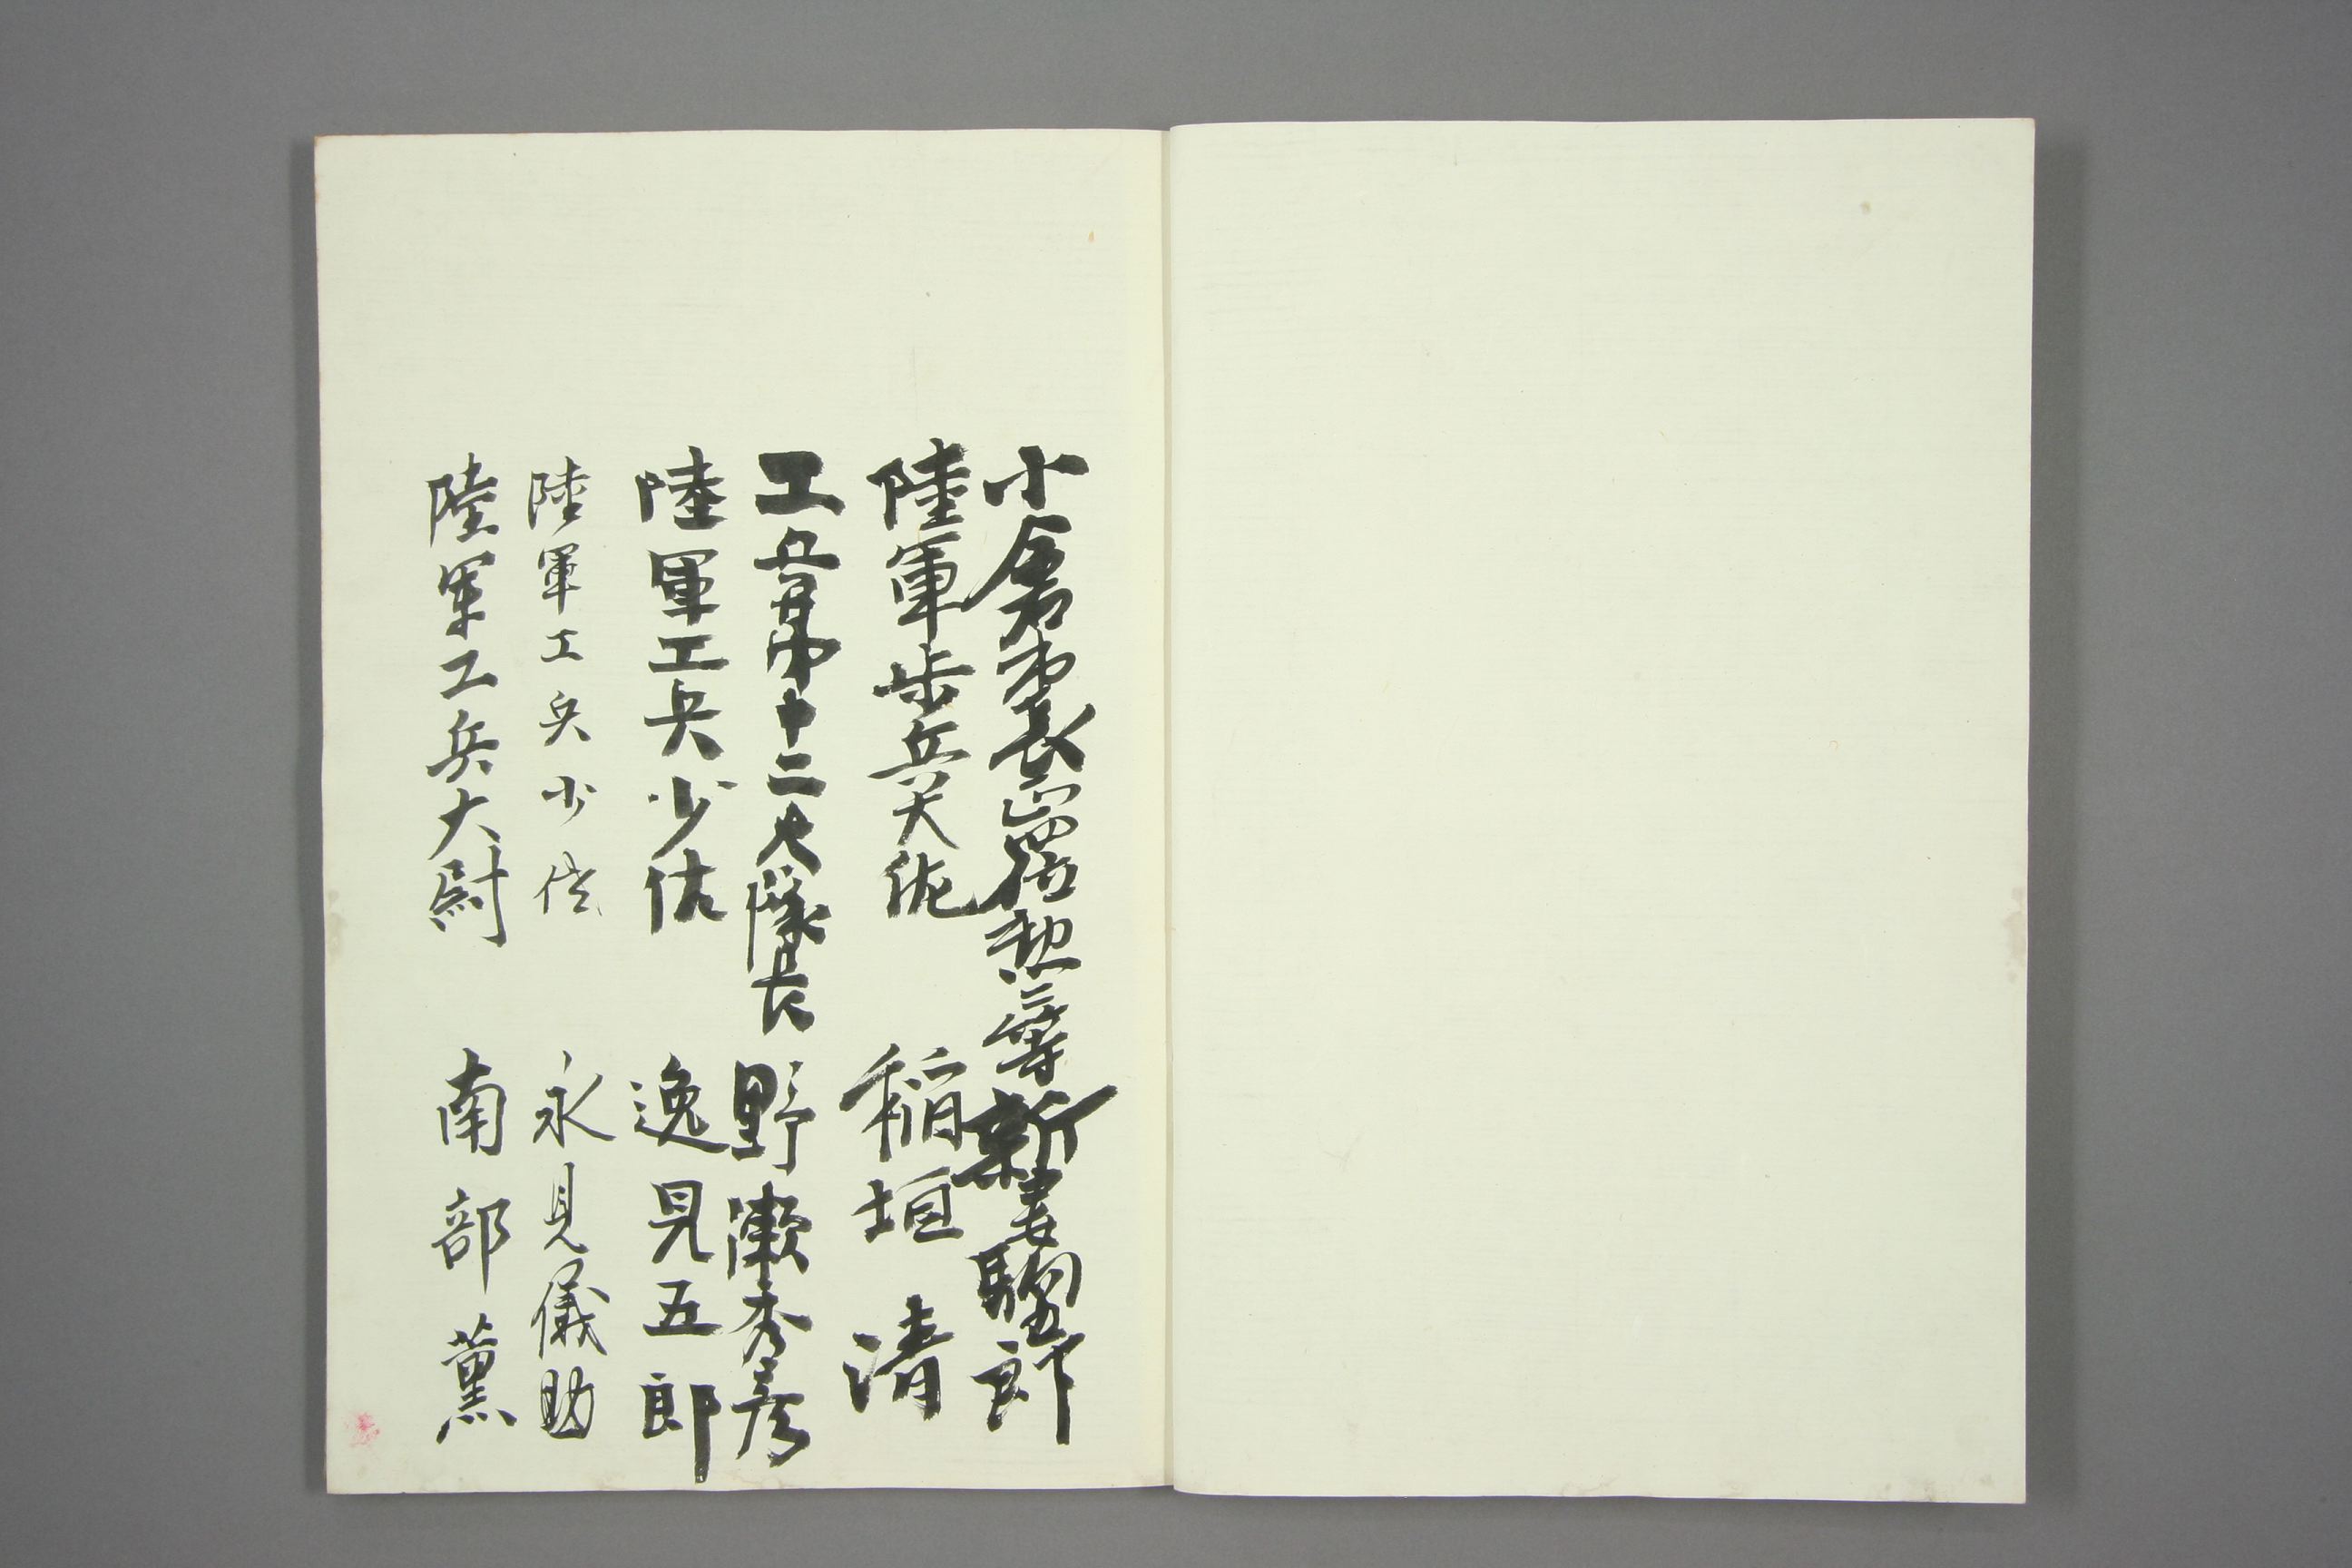 小倉市長正四位勲三等新妻駒五郎
陸軍歩兵大佐 稲垣清
工兵第十二大隊長 野漱秀彦
陸軍工兵少佐 逸見五郎
陸軍工兵少佐 永見儀助
陸軍工兵大尉 南部薫